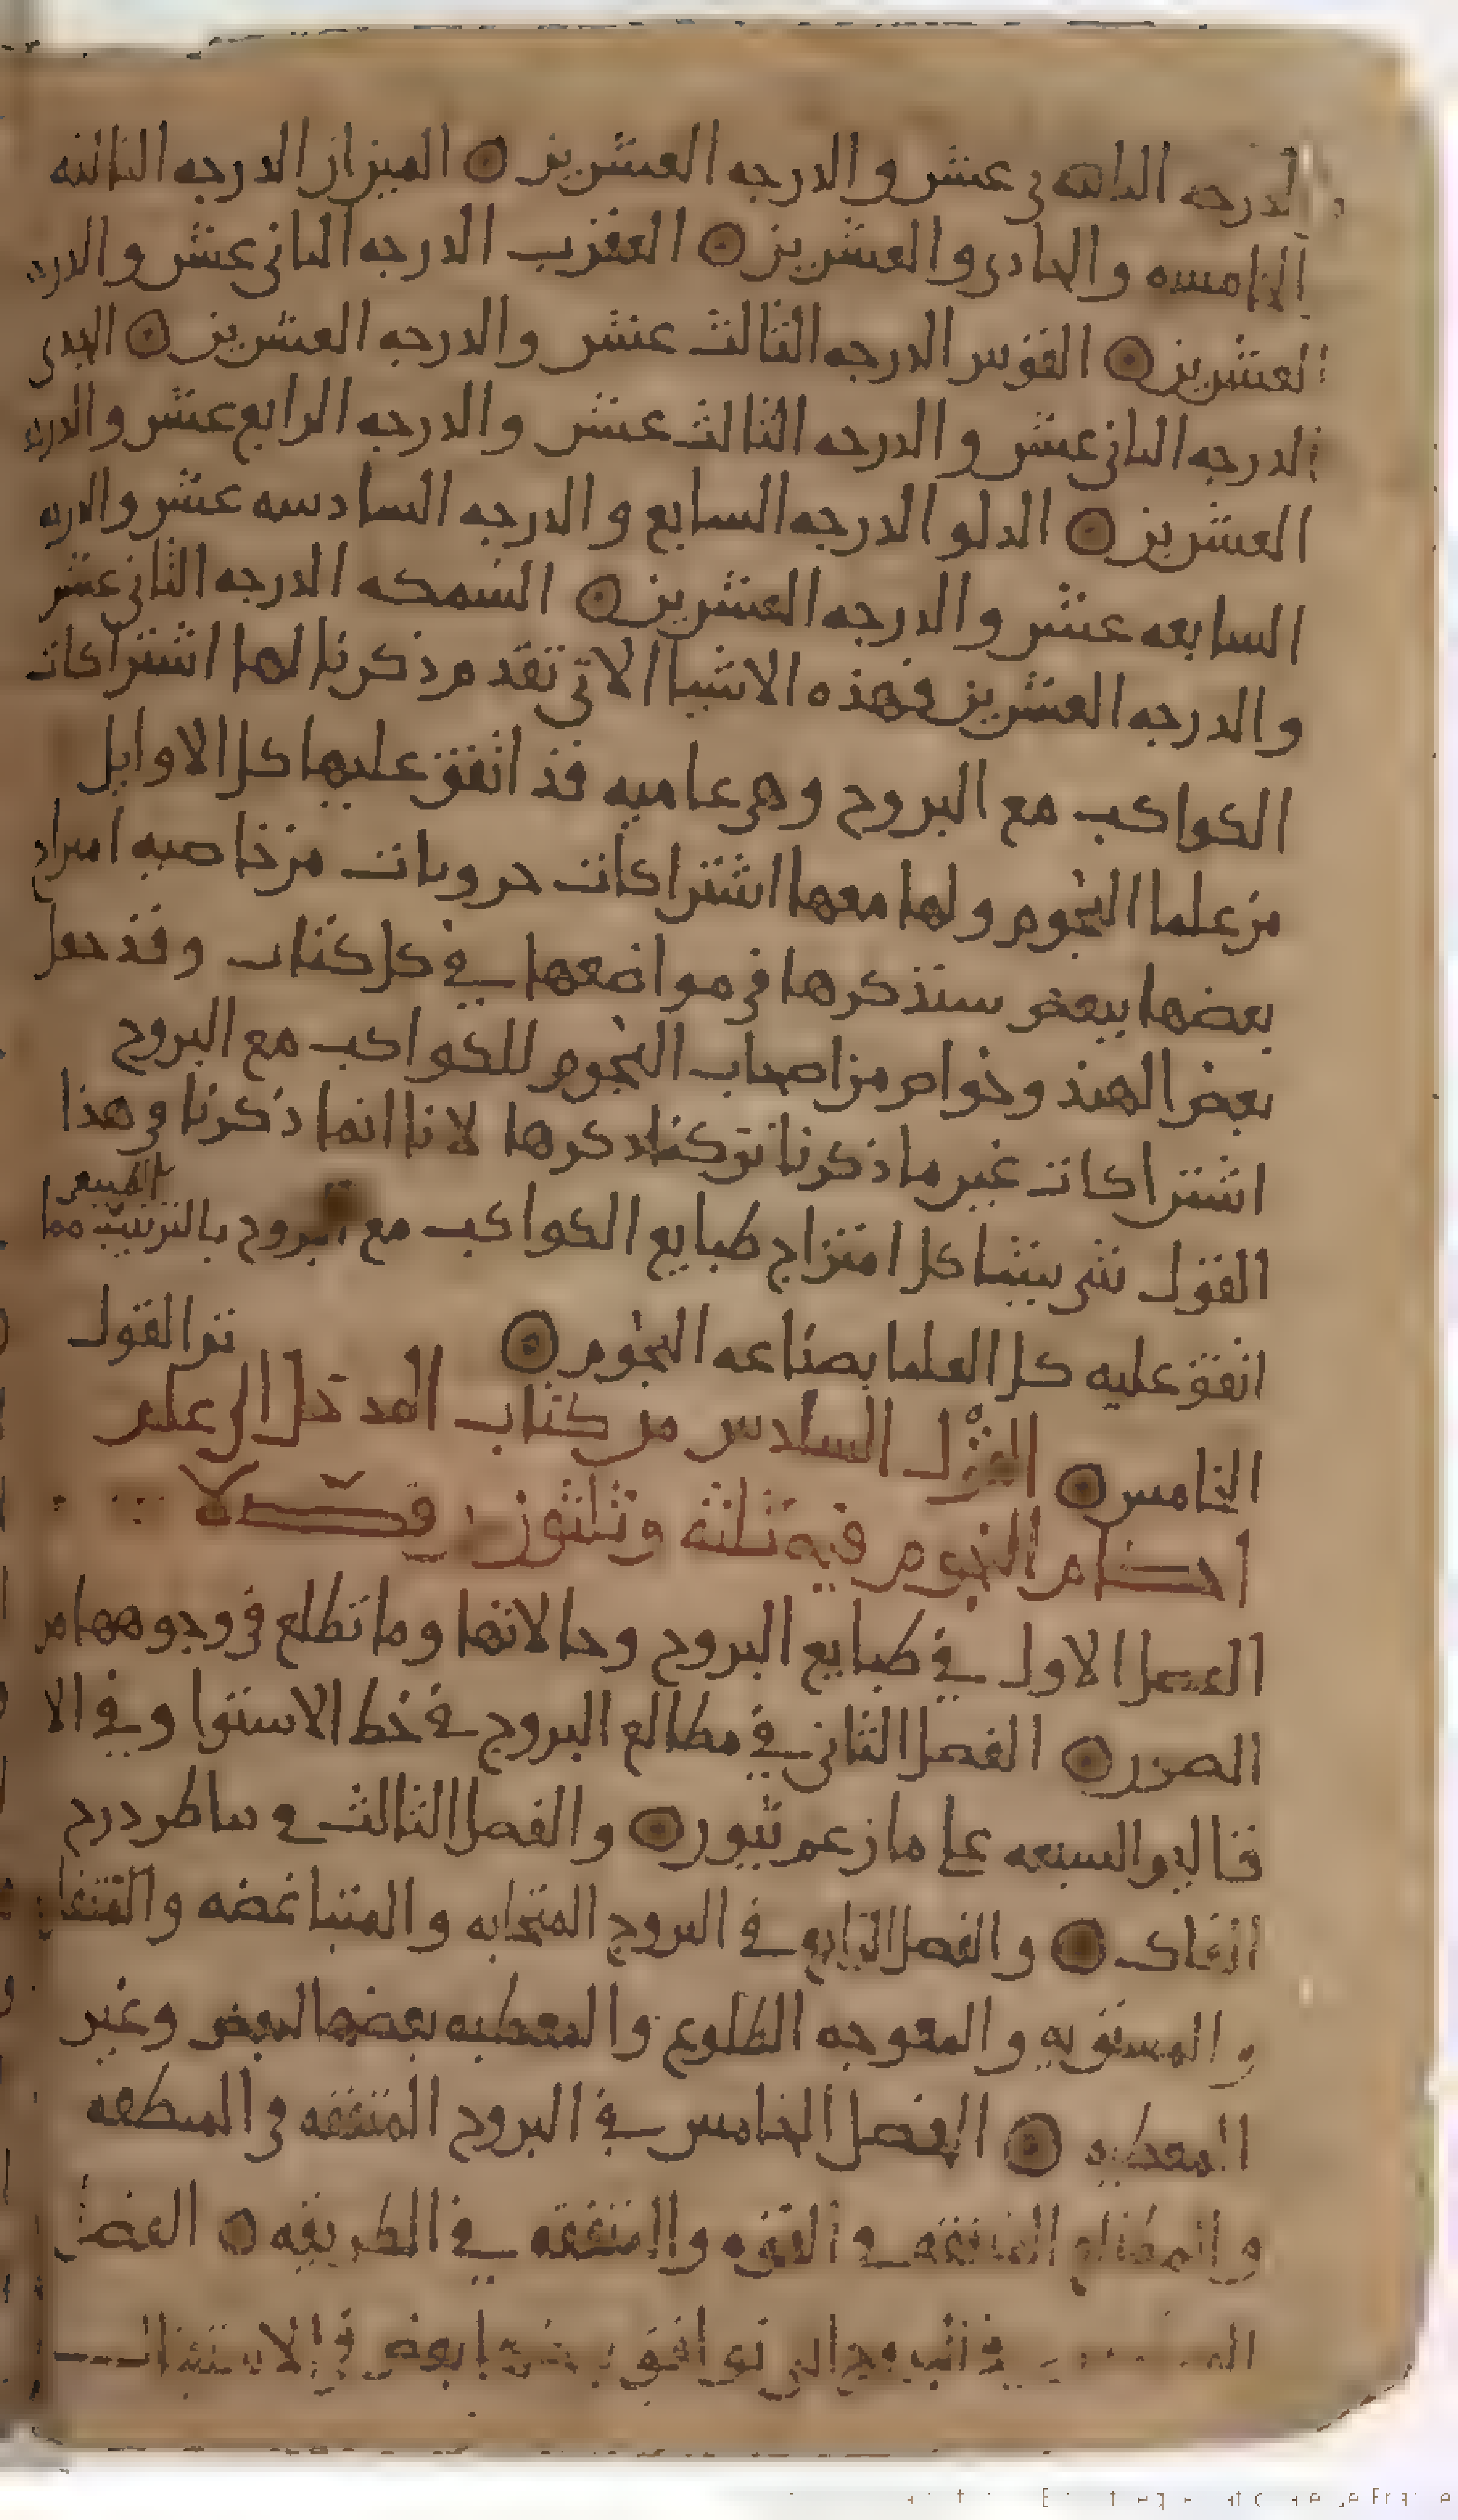 الدرجه الثانيه عشر والدرجه العشرين ۞ الميزان الدرجه الثالثه
الخامسه والحادي والعشرين ۞ العقرب الدرجه الثاني عشر والدرجه
العشرين ۞ القوس الدرجه الثالث عشر والدرجه العشرين ۞ الجدي
الدرجه الثاني عشر والدرجه الثالث عشر والدرجه الرابع عشر والدرجه
العشرين ۞ الدلو الدرجه السابع والدرجه السادسه عشر والدرجه
السابعه عشر والدرجه العشرين ۞ السمكه الدرجه الثاني عشر
والدرجه العشرين فهذه الاشيا الاتي تقدم ذكرنا لها اشتراكات
الكواكب مع البروج وهي عاميه قد اتفق عليها كل الاوايل
من علما النجوم ولها معها اشتراكات جزويات من خاصيه امتزاج
بعضها ببعض سنذكرها في مواضعها في كل كتاب وقد جعل
بعض الهند وخواص من اصحاب النجوم للكواكب مع البروج
اشتراكات غير ما ذكرنا تركنا ذكرها لانا انما ذكرنا في هذا
القول شي شيا كل امتزاج طبايع الكواكب مع البروج بالترتيب الطبيعي مما
اتفق عليه كل العلما بصناعه النجوم ۞ تم القول
الخامس ۞ القول السادس من كتاب المدخل الى علم
احكام النجوم فيه ثلثه وثلثون فصلا
الفصل الاول في طبايع البروج وحالاتها وما تطلع في وجوهها من
الصور ۞ الفصل الثاني في مطالع البروج في خط الاستوا وفي الا
قاليم السبعه على ما زعم ثيون ۞ والفصل الثالث في تناظر درج
الفلك ۞ والفصل الرابع في البروج المتحابه والمتباغضه والمتعاديه
والمستويه والمعوجه الطلوع والمعطيه بعضها لبعض وغير
المعطيه ۞ الفصل الخامس في البروج المتفقه في المنطقه
والمطالع المتفقه في القوه والمتفقه في الطريقه ۞ الفصل
في البروج التي توافق بعضها بعض في الاستقبال